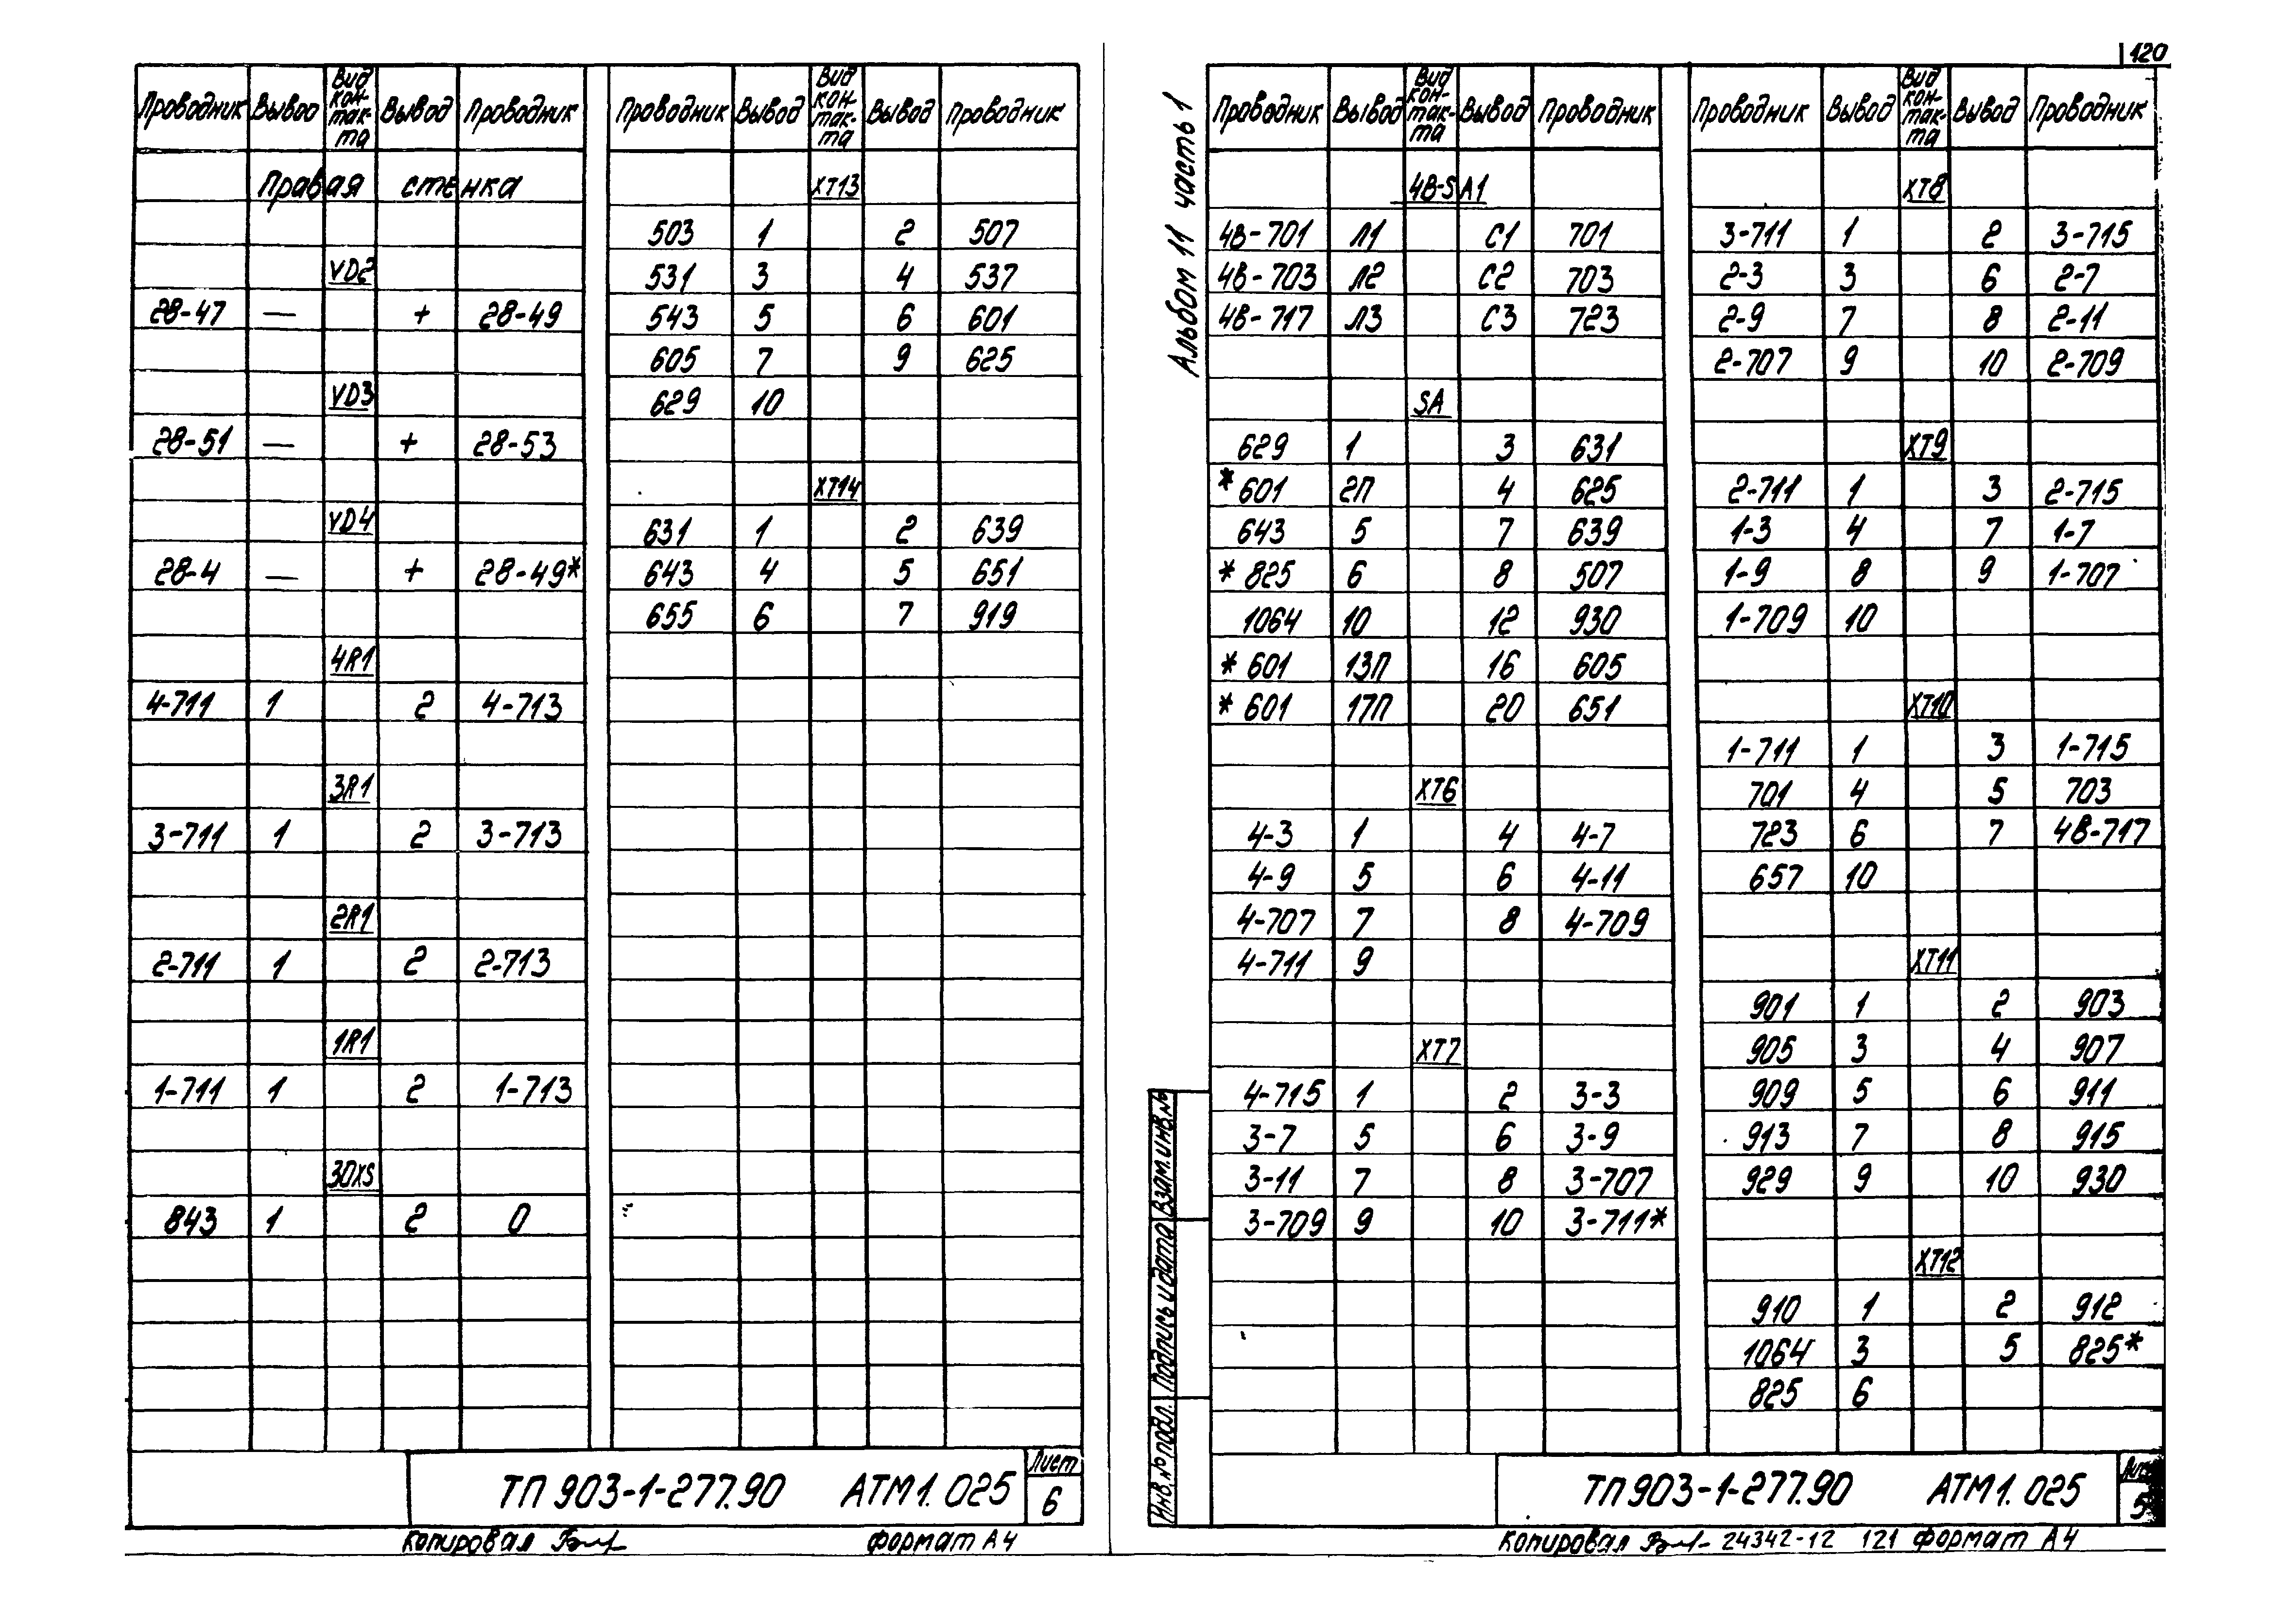 Проводник Вывод Вид контакта Вывод Проводник
Правая стенка
VD2
28-47 — + 28-49
VD3
28-51 — + 28-53
VD4
28-4 — + 28-49*
4R1
4-711 1 2 4-713
3R1
3-711 1 2 3-713
2R1
2-711 1 2 2-713
1R1
1-711 1 2 1-713
30XS
843 1 2 0
Проводник Вывод Вид контакта Вывод Проводник
XT13
503 1 2 507
531 3 4 537
543 5 6 601
605 7 9 625
629 10
XT14
631 1 2 639
643 4 5 651
655 6 7 919
ТП 903-1-277.90 АТМ1.025
Лист
6
Копировал
Формат А4
120
Альбом 11 часть 1
Проводник Вывод Вид контакта Вывод Проводник
4В-SA1
4В-701 Л1 С1 701
4В-703 Л2 С2 703
4В-717 Л3 С3 723
SA
629 1 3 631
*601 2П 4 625
643 5 7 639
*825 6 8 507
1064 10 12 930
*601 13П 16 605
*601 17П 20 651
XT6
4-3 1 4 4-7
4-9 5 6 4-11
4-707 7 8 4-709
4-711 9
XT7
4-715 1 2 3-3
3-7 5 6 3-9
3-11 7 8 3-707
3-709 9 10 3-711*
Проводник Вывод Вид контакта Вывод Проводник
XT8
3-711 1 2 3-715
2-3 3 6 2-7
2-9 7 8 2-11
2-707 9 10 2-709
XT9
2-711 1 3 2-715
1-3 4 7 1-7
1-9 8 9 1-707
1-709 10
XT10
1-711 1 3 1-715
701 4 5 703
723 6 7 4В-717
657 10
XT11
901 1 2 903
905 3 4 907
909 5 6 911
913 7 8 915
929 9 10 930
XT12
910 1 2 912
1064 3 5 825*
825 6
Взам. инв. №
Подпись и дата
Инв. № подл.
ТП 903-1-277.90 АТМ1.025
5
Копировал
24342-12 121 Формат А4